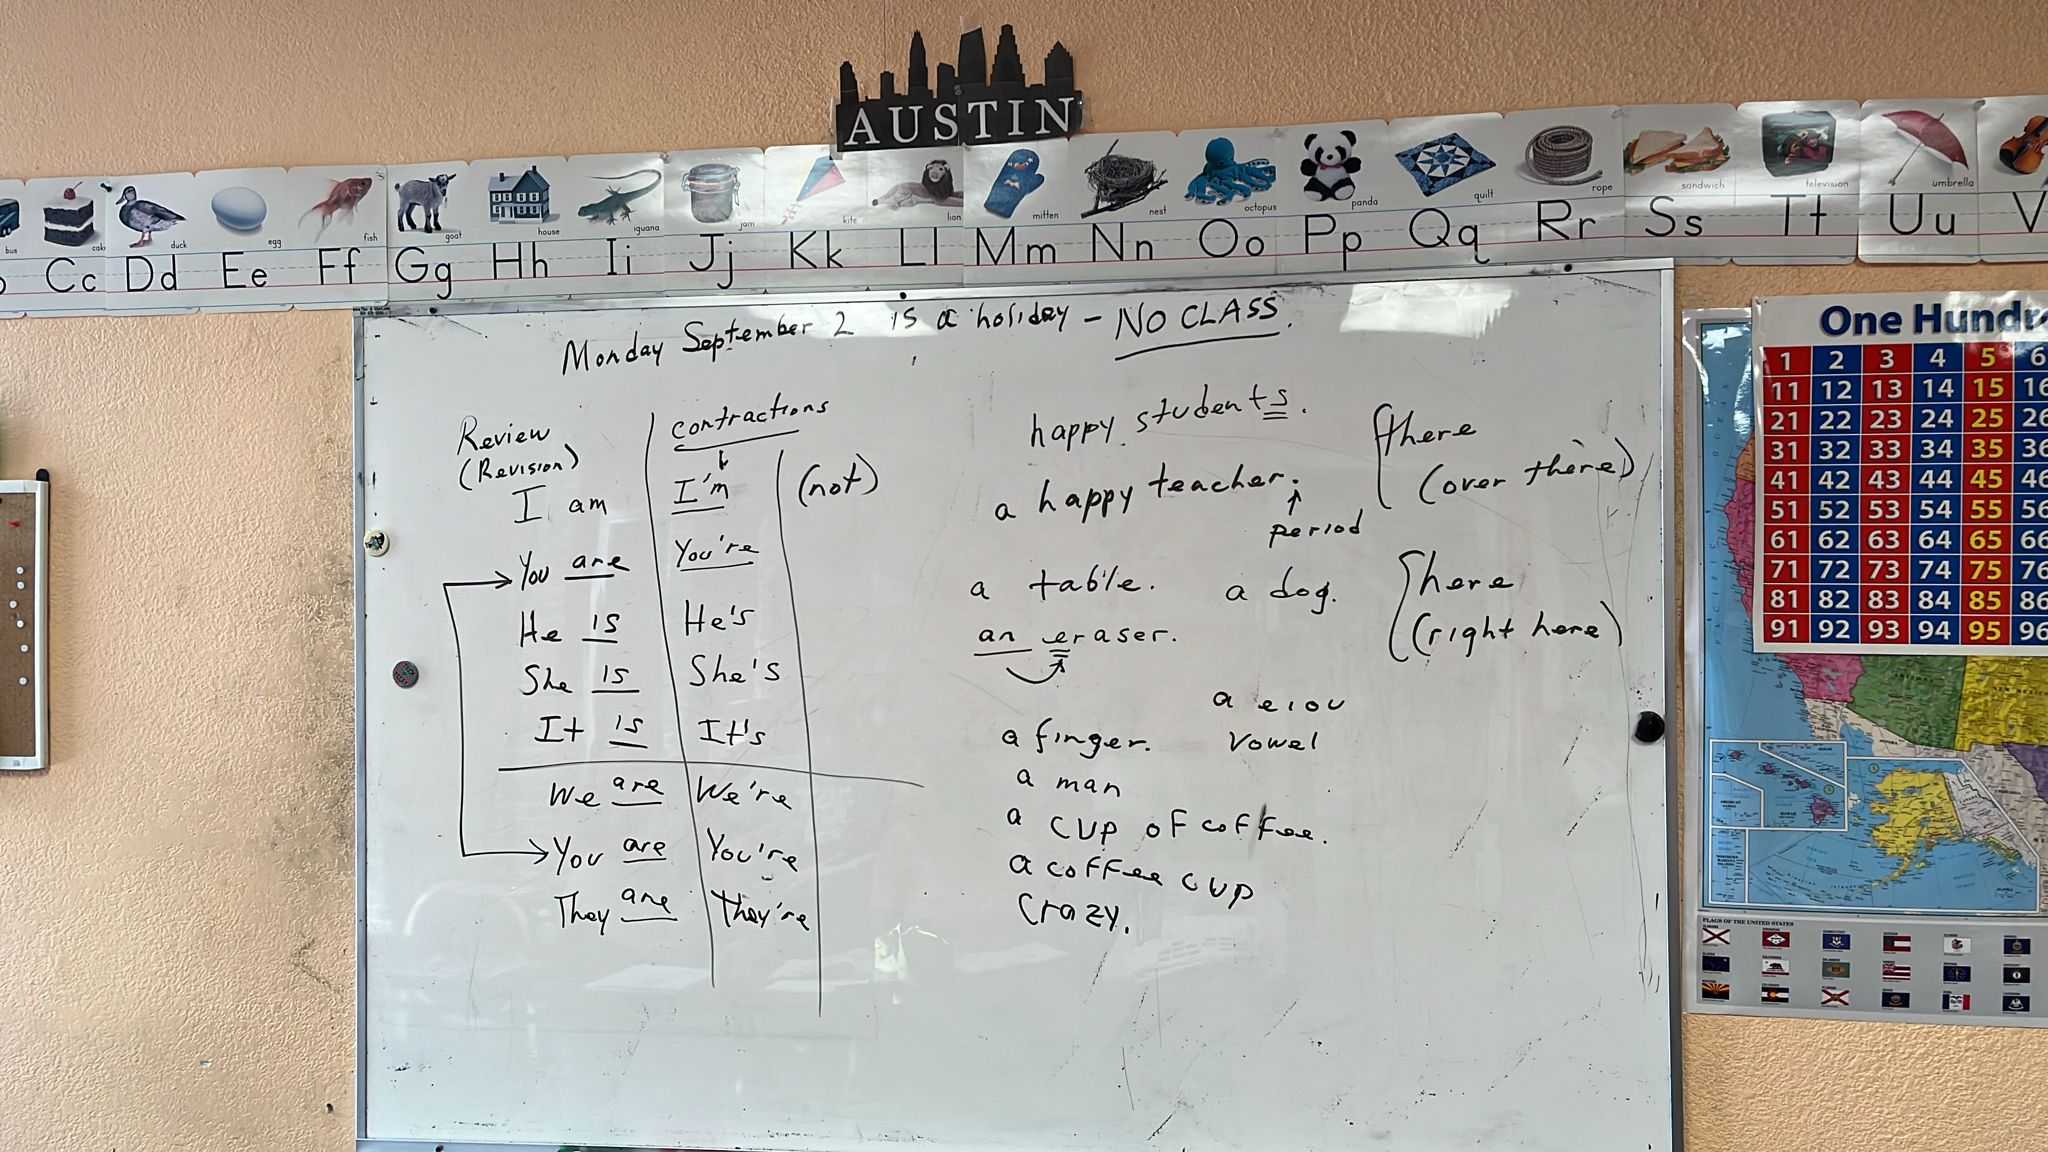 AUSTIN
bus cake duck egg fish goat house iguana jam kite lion mitten nest octopus panda quilt rope sandwich television umbrella
Cc Dd Ee Ff Gg Hh Ii Jj Kk Ll Mm Nn Oo Pp Qq Rr Ss Tt Uu V
Monday September 2 is a holiday - NO CLASS.
Review
(Revision)
contractions
(not)
I am I'm
You are You're
He is He's
She is She's
It is It's
We are We're
You are You're
They are They're
happy students.
a happy teacher.
period
a table. a dog.
an eraser.
a e i o u
vowel
a finger.
a man
a cup of coffee.
a coffee cup
crazy.
there
(over there)
here
(right here)
One Hundr
1 2 3 4 5 6
11 12 13 14 15 16
21 22 23 24 25 26
31 32 33 34 35 36
41 42 43 44 45 46
51 52 53 54 55 56
61 62 63 64 65 66
71 72 73 74 75 76
81 82 83 84 85 86
91 92 93 94 95 96
ARIZONA
NEW MEXICO
FLAGS OF THE UNITED STATES